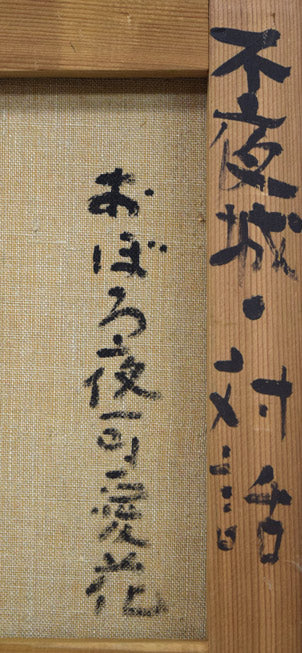 不夜城・対話
おぼろ夜可愛花